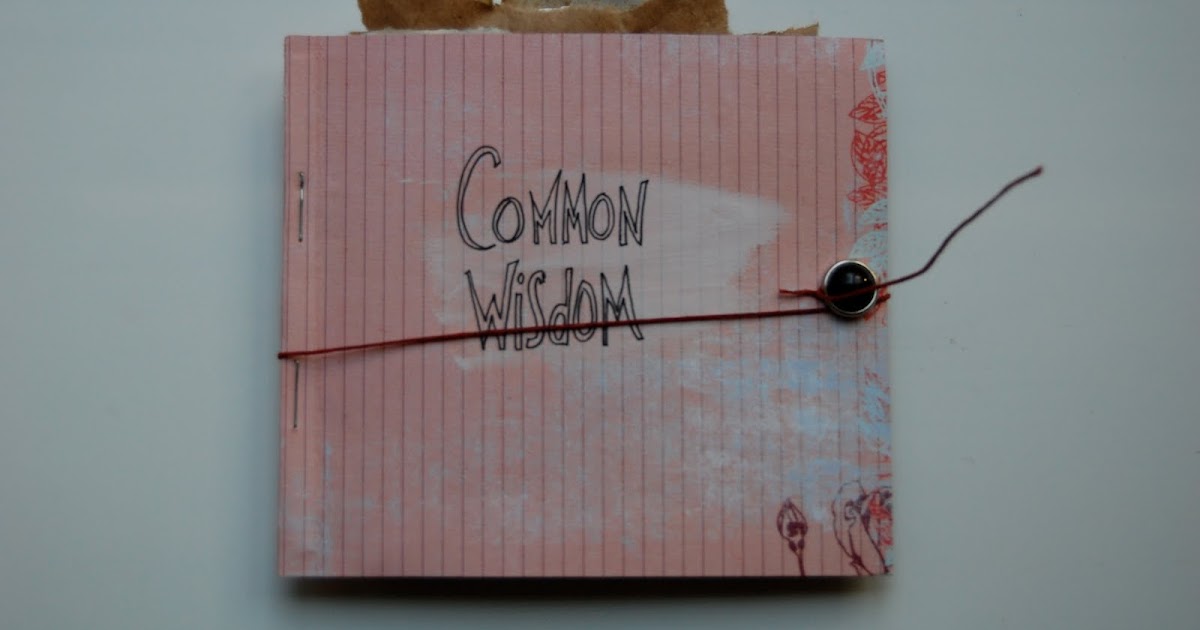 Common
Wisdom